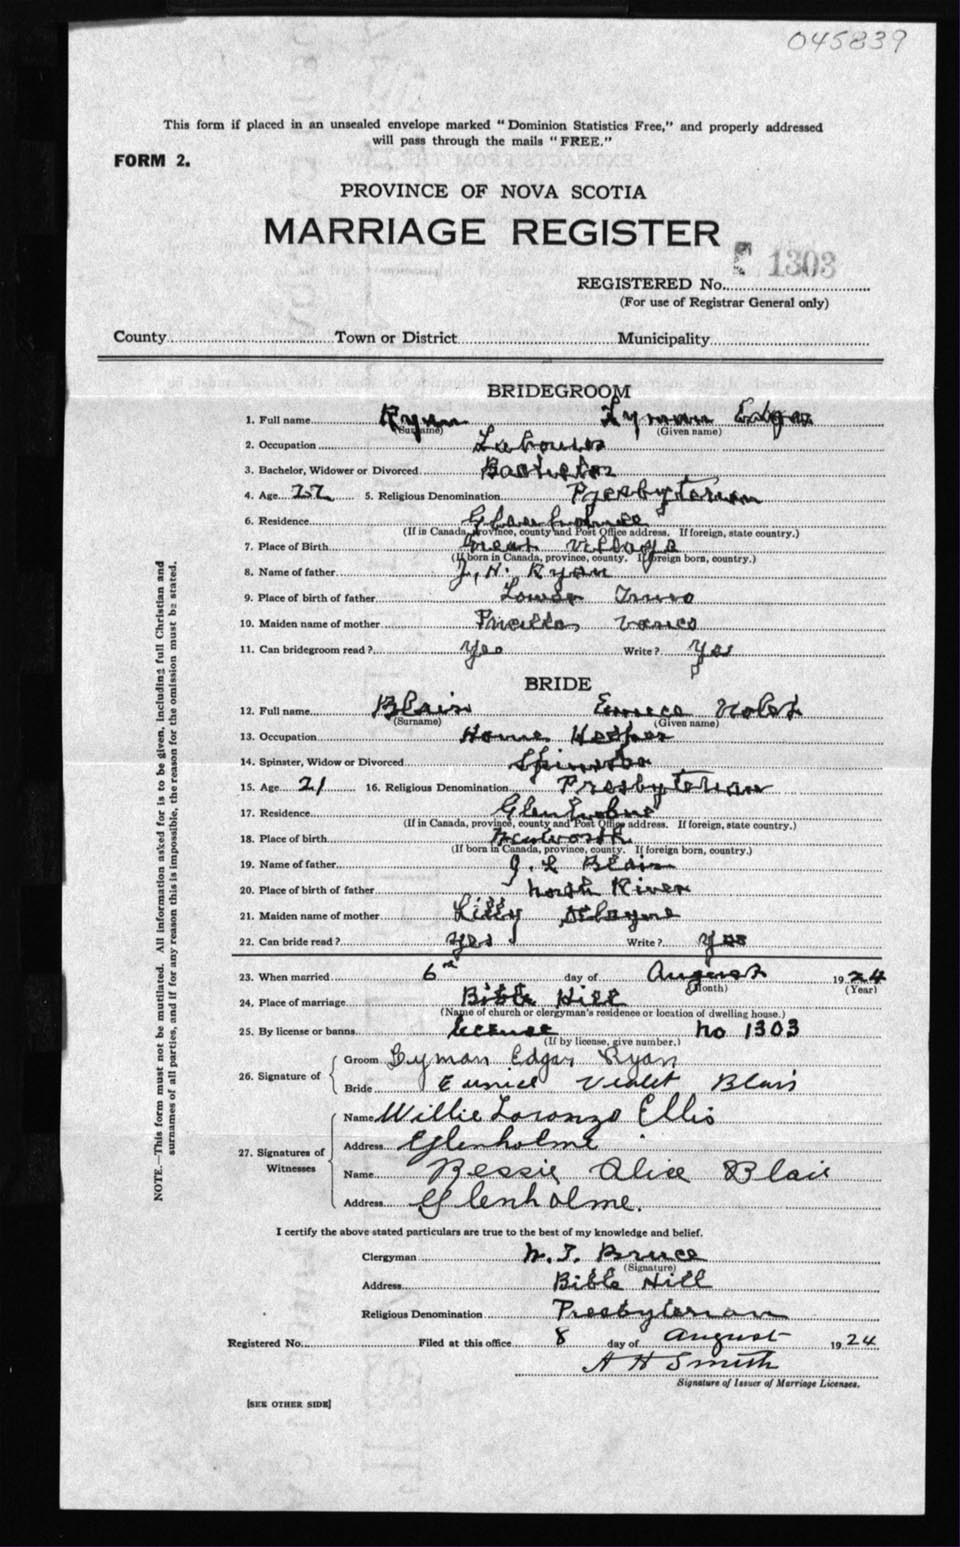 045839
This form if placed in an unsealed envelope marked "Dominion Statistics Free," and properly addressed
will pass through the mails "FREE."
FORM 2.
PROVINCE OF NOVA SCOTIA
MARRIAGE REGISTER
1303
REGISTERED No.
(For use of Registrar General only)
County Town or District Municipality
BRIDEGROOM
1. Full name Ryan Lyman Edgar
(Surname) (Given name)
2. Occupation Labourer
3. Bachelor, Widower or Divorced Bachelor
4. Age 22 5. Religious Denomination Presbyterian
6. Residence Glenholme
(If in Canada, province, county and Post Office address. If foreign, state country.)
7. Place of Birth Great Village
(If born in Canada, province, county. If foreign born, country.)
8. Name of father J. H. Ryan
9. Place of birth of father Lower Truro
10. Maiden name of mother Pricilla
11. Can bridegroom read? Yes Write? Yes
BRIDE
12. Full name Blair Eunice Violet
(Surname) (Given name)
13. Occupation Home Keeper
14. Spinster, Widow or Divorced Spinster
15. Age 21 16. Religious Denomination Presbyterian
17. Residence Glenholme
(If in Canada, province, county and Post Office address. If foreign, state country.)
18. Place of birth Wentworth
(If born in Canada, province, county. If foreign born, country.)
19. Name of father J. L Blair
20. Place of birth of father North River
21. Maiden name of mother Lilly
22. Can bride read? Yes Write? Yes
23. When married 6 day of August 1924
(Month) (Year)
24. Place of marriage Bible Hill
(Name of church or clergyman's residence or location of dwelling house.)
25. By license or banns license no 1303
(If by license, give number.)
26. Signature of Groom Lyman Edgar Ryan
Bride Eunice Violet Blair
27. Signatures of Witnesses Name Willie Loronzo Ellis
Address Glenholme
Name Bessie Alice Blair
Address Glenholme.
I certify the above stated particulars are true to the best of my knowledge and belief.
Clergyman W. T. Bruce
(Signature)
Address Bible Hill
Religious Denomination Presbyterian
Registered No. Filed at this office 8 day of August 1924
A H Smith
Signature of Issuer of Marriage Licenses.
[SEE OTHER SIDE]
NOTE.—This form must not be mutilated. All information asked for is to be given, including full Christian and
surnames of all parties, and if for any reason this is impossible, the reason for the omission must be stated.